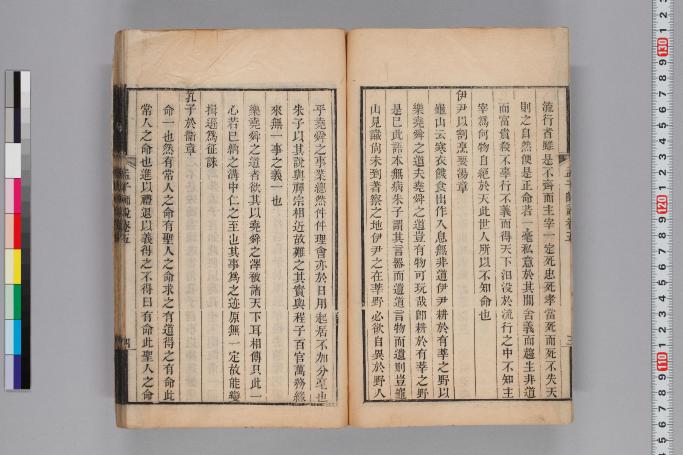 流行者雖是不齊而主宰一定死忠死孝當死而死不失天
則之自然便是正命若一毫私意於其間舍義而趨生非道
而富貴殺不辜行不義而得天下汩沒於流行之中不知主
宰為何物自絕於天此世人所以不知命也
伊尹以割烹要湯章
龜山云寒衣饑食出作入息無非道伊尹耕於有莘之野以
樂堯舜之道夫堯舜之道豈有物可玩哉即耕於有莘之野
是已此語本無病朱子謂其言器而遺道言物而遺則豈龜
山見識尚未到著察之地伊尹之在莘野必欲自異於野人
孟子師說卷五
三
乎堯舜之事業總然件件理會亦於日用起居不加分毫也
朱子以其說與禪宗相近故難之其實與程子百官萬務繚
來無一事之義一也
樂堯舜之道者欲其以堯舜之澤被諸天下耳相傳只此一
心若已納之溝中仁之至也其事為之迹原無一定故能變
揖遜為征誅
孔子於衞章
命一也然有常人之命有聖人之命求之有道得之有命此
常人之命也進以禮退以義得之不得曰有命此聖人之命
孟子師說卷五
四